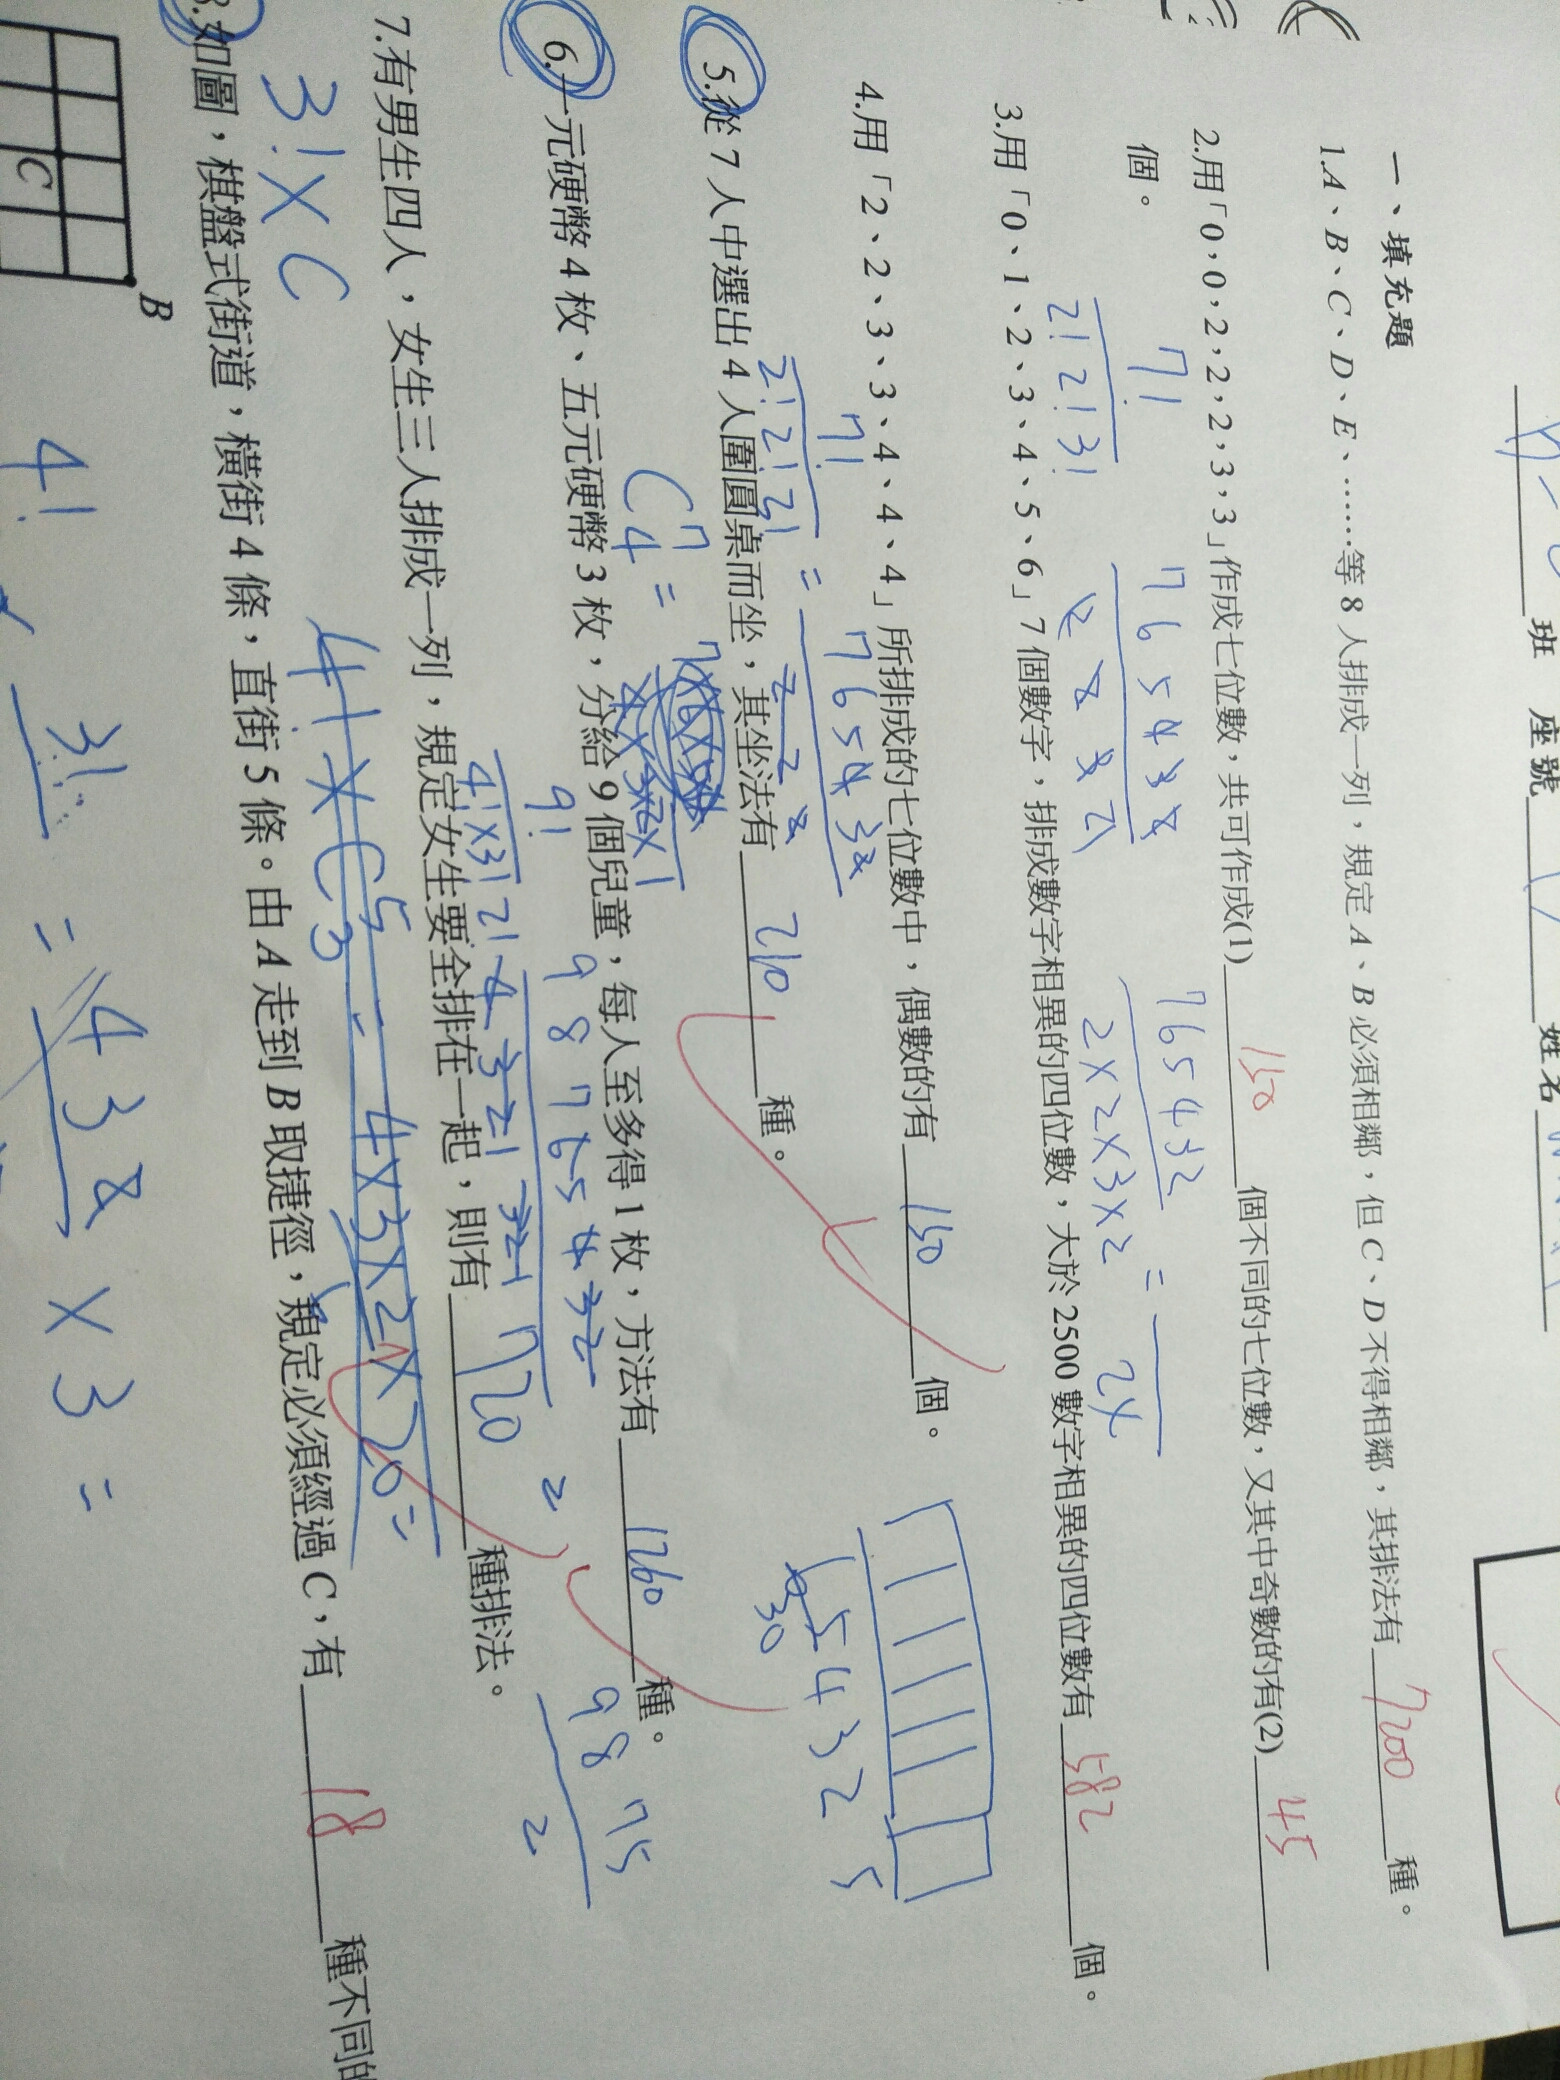 班 座號 姓名
一、填充題
1.A、B、C、D、E、……等 8 人排成一列，規定 A、B 必須相鄰，但 C、D 不得相鄰，其排法有 7200 種。
2.用「0，0，2，2，2，3，3」作成七位數，共可作成(1) 150 個不同的七位數，又其中奇數的有(2) 45
個。
7! 7 6 5 4 3 2 7 6 5 4 3 2
2! 2! 3! 2 2 3 2 2×2×3×2 = 24
3.用「0、1、2、3、4、5、6」7 個數字，排成數字相異的四位數，大於 2500 數字相異的四位數有 582 個。
4.用「2、2、3、3、4、4、4」所排成的七位數中，偶數的有 150 個。
7! = 7 6 5 4 3 2
2! 2! 3! 2 2 3 2
6 5 4 3 2 5
30
5.從 7 人中選出 4 人圍圓桌而坐，其坐法有 210 種。
C 7 4 =
6.一元硬幣 4 枚、五元硬幣 3 枚，分給 9 個兒童，每人至多得 1 枚，方法有 1260 種。
9! 9 8 7 6 5 4 3 2 = 9 8 7 5
4!×3! 2! 4 3 2 1 3 2 1 2
7.有男生四人，女生三人排成一列，規定女生要全排在一起，則有 720 種排法。
3!×C
4!×C 5 3 = 4×3×2×1×20=
8.如圖，棋盤式街道，橫街 4 條，直街 5 條。由 A 走到 B 取捷徑，規定必須經過 C，有 18 種不同的
B
C
4! 3! = 4 3 2 × 3 =